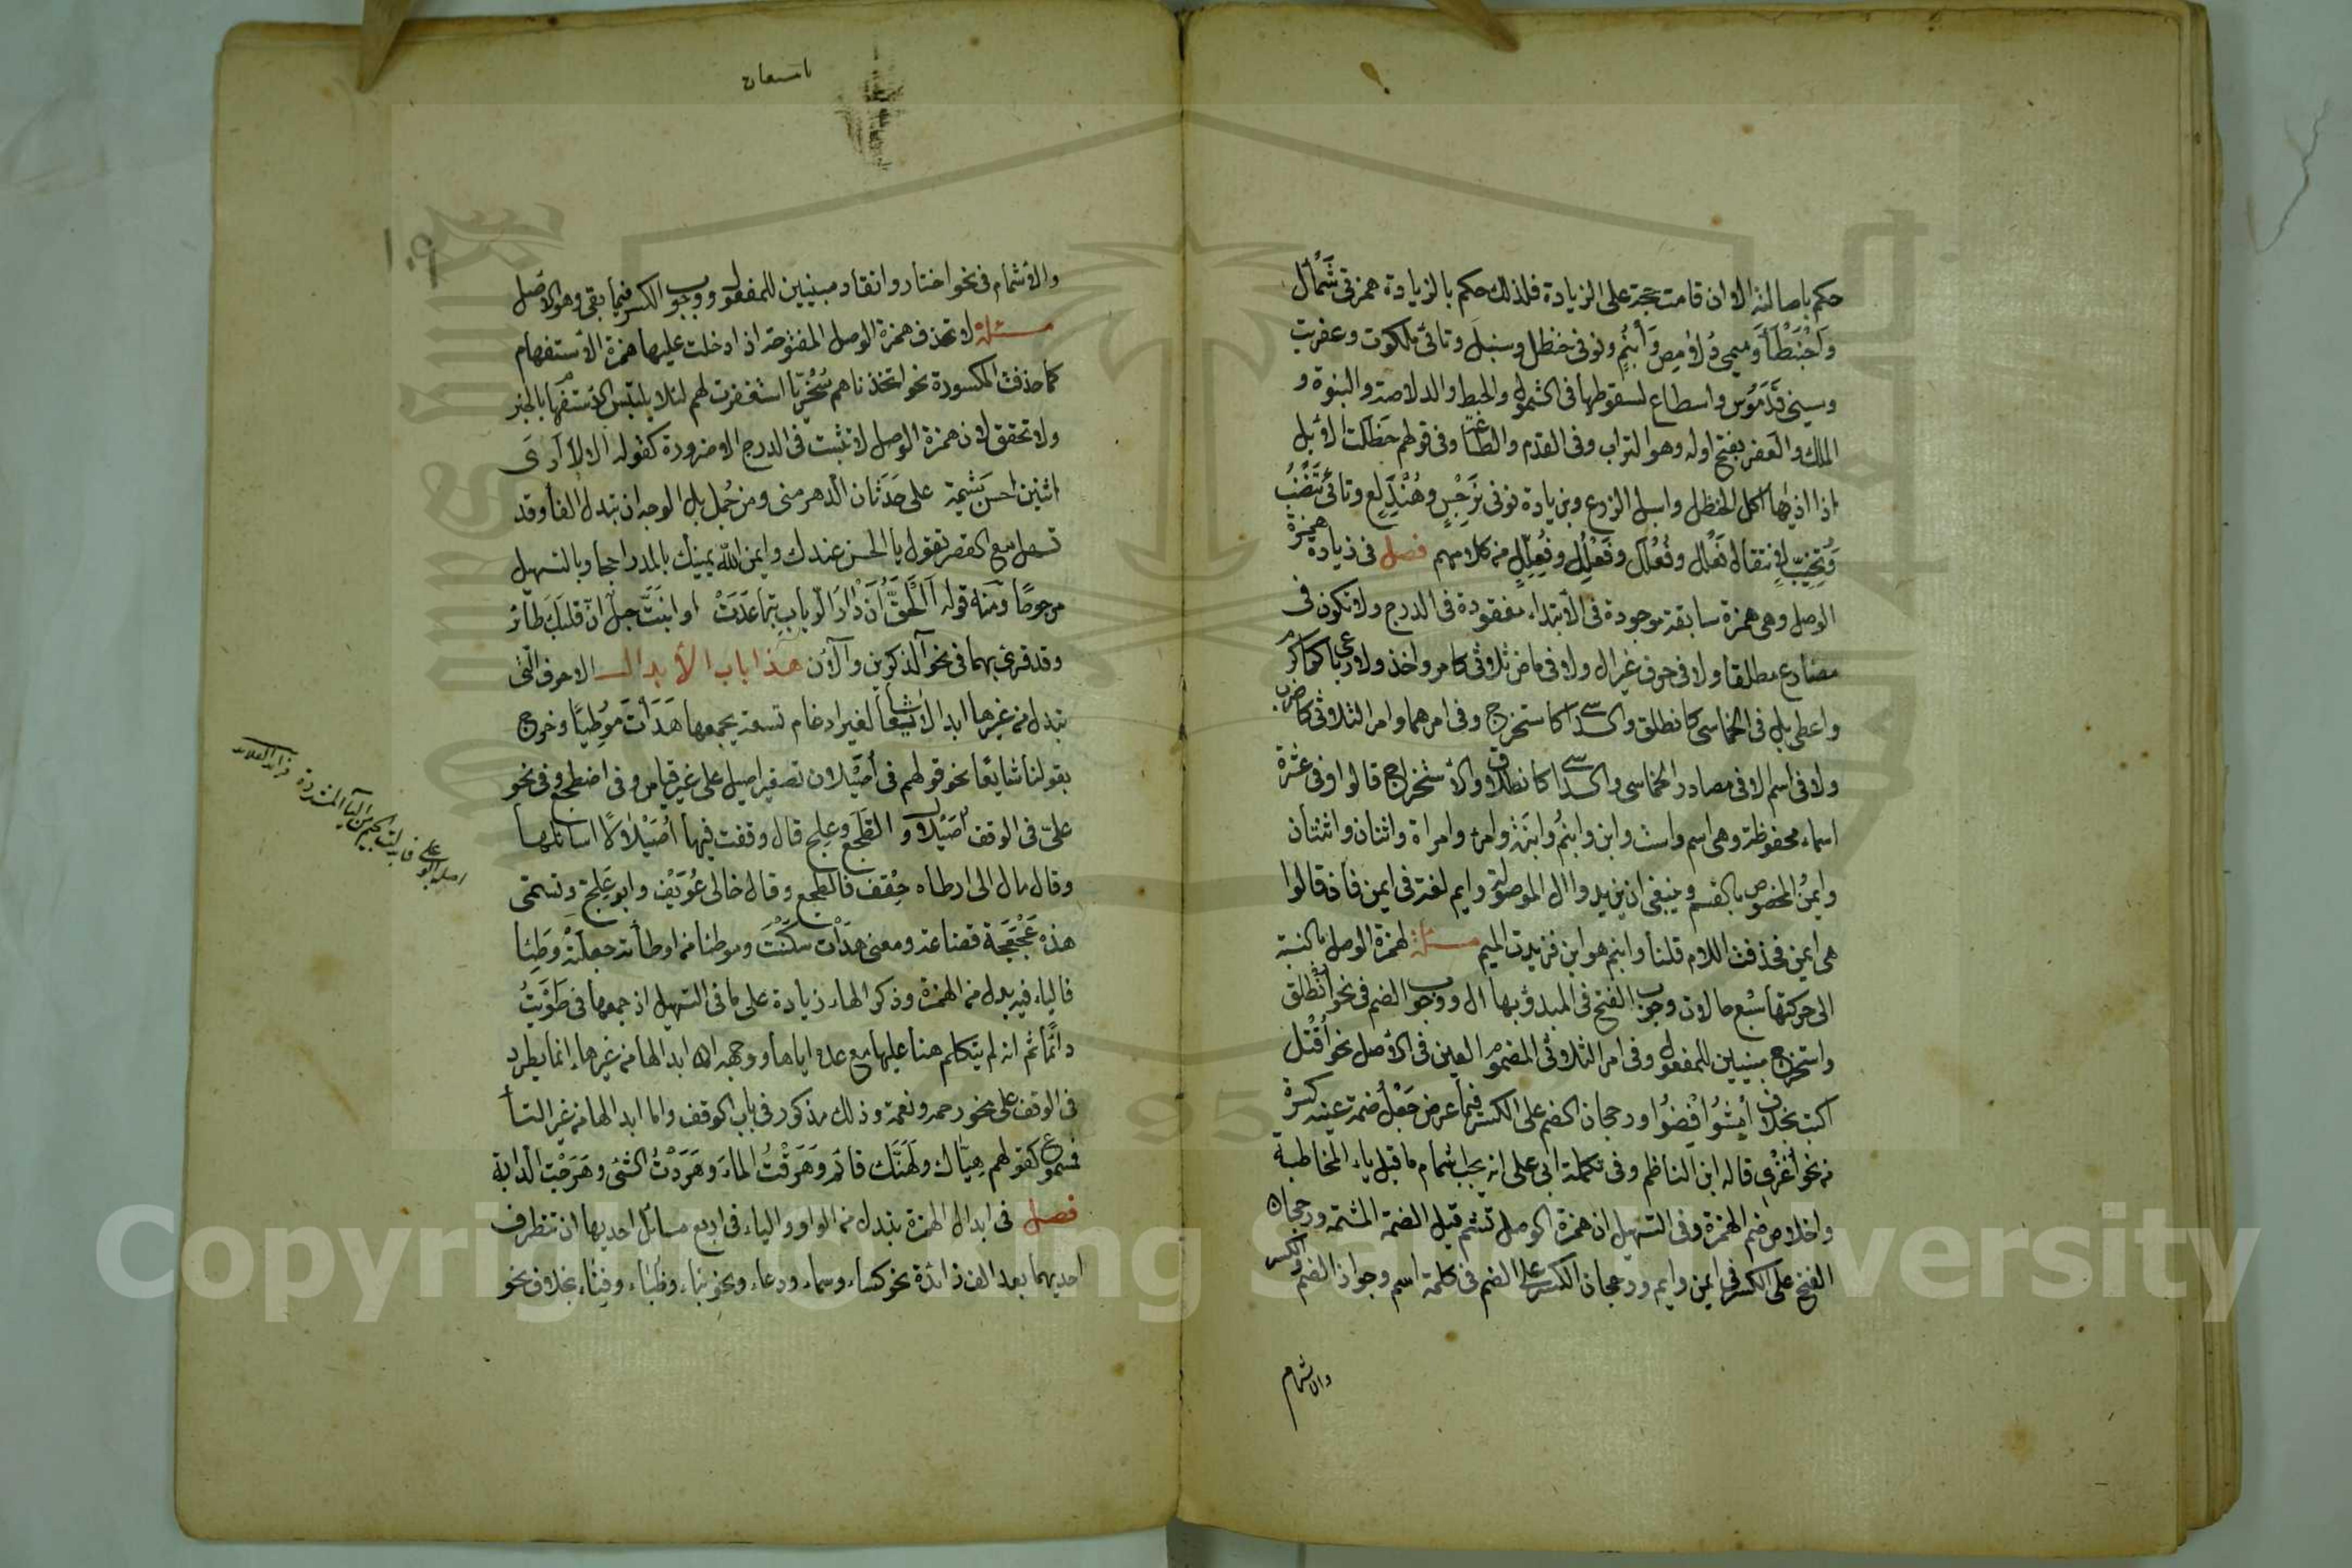 حكم باصالته الا ان قامت حجة على الزيادة فلذلك حكم بالزيادة همزتى شَمْأل
وَاحْبَنْطَأَ وميمى دُلامِص وَابْنُمٍ ونونى حنظل وسنبل وتائى ملكوت وعفريت
وسينى قدموس واسطاع لسقوطها فى الشمول والحبط والدلاصة والبنوة و
الملك والعفر بفتح اوله وهو التراب وفى القدم والطاعة وفى قولهم حَظِلَت الابل
اذا اذيها اكل الحنظل واسبل الزرع وبزيادة نونى نَرْجِسٍ وهُنْدَلِع وتائى تَنْضُبُ
وتُخُيِّبَ لانتفاء فَعْلِل وفُعْلَلِل وفَعْلُل وفُعُلِّلٍ من كلامهم فصل فى زيادة همزة
الوصل وهى همزة سابقة موجودة فى الابتداء مفقودة فى الدرج ولا تكون فى
مضارع مطلقا ولا فى حرف غير ال ولا فى ماض ثلاثى كامر واخذ ولا رباعى كاكرم
واعطى بل فى الخماسى كانطلق والسداسى كاستخرج وفى امرهما وامر الثلاثى كاضرب
ولا فى اسم الا فى مصادر الخماسى والسداسى كانطلاق والاستخراج قالوا وفى عشرة
اسماء محفوظة وهى اسم واست وابن وابنُمُ وابنَة وامرؤ وامراة واثنان واثنتان
وايمُن المخصوص بالقسم وينبغى ان يزيدوا ال الموصولة وايم لغة فى ايمن فان قالوا
هى ايمن فحذفت اللام قلنا وابنم هو ابن فزيدت الميم مسئلة لهمزة الوصل بالنسبة
الى حركتها سَبْع حالات وجوب الفتح فى المبدؤ بها ال ووجوب الضم فى نحو اُنْطُلِق
واستخرج مبنيين للمفعول وفى امر الثلاثى المضموم العين فى الاصل نحو اُقْتُل
اكتب بخلاف اُمشُوا اقْضُوا ورجحان الضم على الكسر فيما عرض جَعْل ضمة عينه كسرة
من نحو اُغْزِى قاله ابن الناظم وفى تكملة ابى على انه يجب اشمام ما قبل ياء المخاطبة
واخلاص ضم الهمزة وفى التسهيل ان همزة الوصل تشم قبل الضمة المشمة ورجحان
الفتح على الكسر فى ايمن وايم ورجحان الكسر على الضم فى كلمة اسم وجواز الضم والكسر
والاشمام
والاشمام فى نحو اختار وانقاد مبنيين للمفعول ووجوب الكسر فيما بقى وهو الاصل
مسئلة لا تحذف همزة الوصل المفتوحة اذا دخلت عليها همزة الاستفهام
كما حذفت المكسورة نحو اتخذناهم سُخْرِيّا استغفرت لهم لئلا يلتبس الاستفهام بالخبر
ولا تحقق لان همزة الوصل لا تثبت فى الدرج الا ضرورة كقوله الا لا أرى
اثنين احسن شيمة على حَدَثان الدهر منى ومن جُمل بل الوجه ان تبدل الفا وقد
تسهل مع القصر تقول يا الحسن عندك وايمن الله يمينك بالمد راجحا وبالتسهيل
مرجوحًا ومنه قوله اَلْحَقُّ ان دَارَ الرباب تباعَدَتْ او انبتَّ حبل اَنّ قلبَك طائر
وقد قرئ بهما فى نحو آلذكرين وآلآن هذا باب الأبدال الاحرف التى
تبدل من غيرها ابدالا شايعا لغير ادغام تسعة يجمعها هَدَأتَ مُوْطِيًا وخرج
بقولنا شايعًا نحو قولهم فى اُصَيْلان تصغير اصيل على غير قياس وفى اضطجع وفى نحو
علىّ فى الوقف اُصَيْلال والطَجَع وعلِج قال وقفت فيها اُصَيْلالًا اسائلها
وقال مال الى ارطاه حِقْف فالطجع وقال خالى عُوَيْف وابو عَلِجّ وتسمى
هذه عَجْعَجَة قضاعة ومعنى هدَأت سكَنْتَ وموطئا من اوطأته جعلته وَطِيًا
فالياء فيه بدل من الهمزة وذكر الهاء زيادة على ما فى التسهيل اذ جمعها فى طَوَيتُ
دائمًا ثم انه لم يتكلم هنا عليها مع عده اياها ووجهه ان ابدالها من غيرها انما يطرد
فى الوقف على نحو رحمه ونعمة وذلك مذكور فى باب الوقف واما ابدالها من غير التاء
فمسموع كقولهم هِيّاك ولَهِنَّك قائم وهَرَقْتُ الماءَ وهَرَدْتُ الشئ وهَرَحْت الدابة
فصل فى ابدال الهمزة تبدل من الواو والياء فى اربع مسائل احديها ان تتطرف
احديهما بعد الف زائدة نحو كساء وسماء ودعاء ونحو بناء وظباء وفناء بخلاف نحو
١٠٩
Copyright © King Saud University
1957